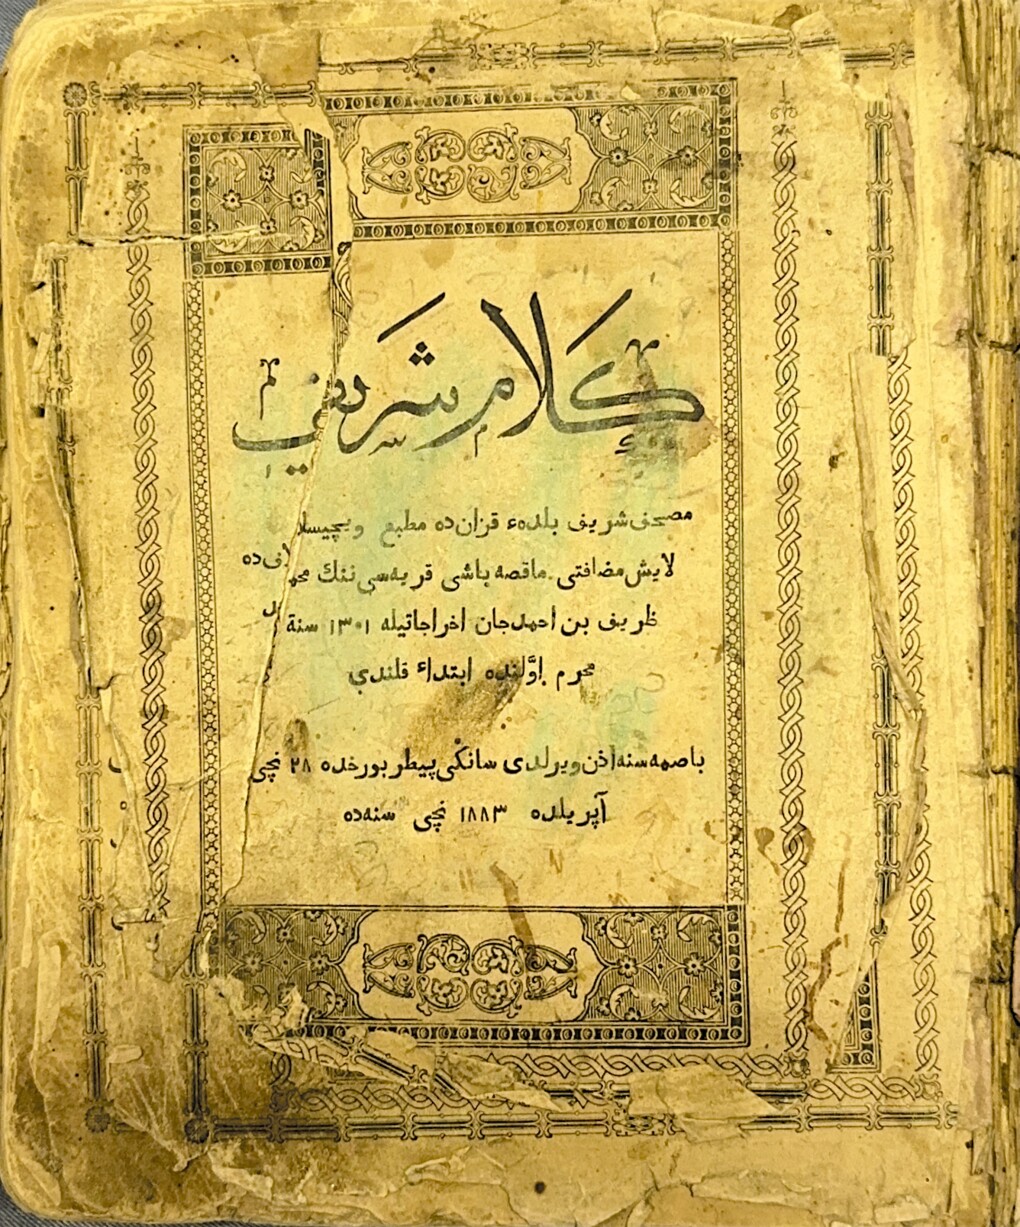 كلام شريف
مصحف شريف بلدهء قزان ده مطبع ويچيسلاف ده
لايش مضافتى ماقصه باشى قريه سى ننك محمد
ظريف بن احمدجان اخراجاتيله ١٣٠١ سنة
محرم اوّلنده ابتداء قلندي
باصمه سنه اذن ويرلدى سانكى پيطربورخده ٢٨ نچى
آپريلده ١٨٨٣ نچى سنه ده